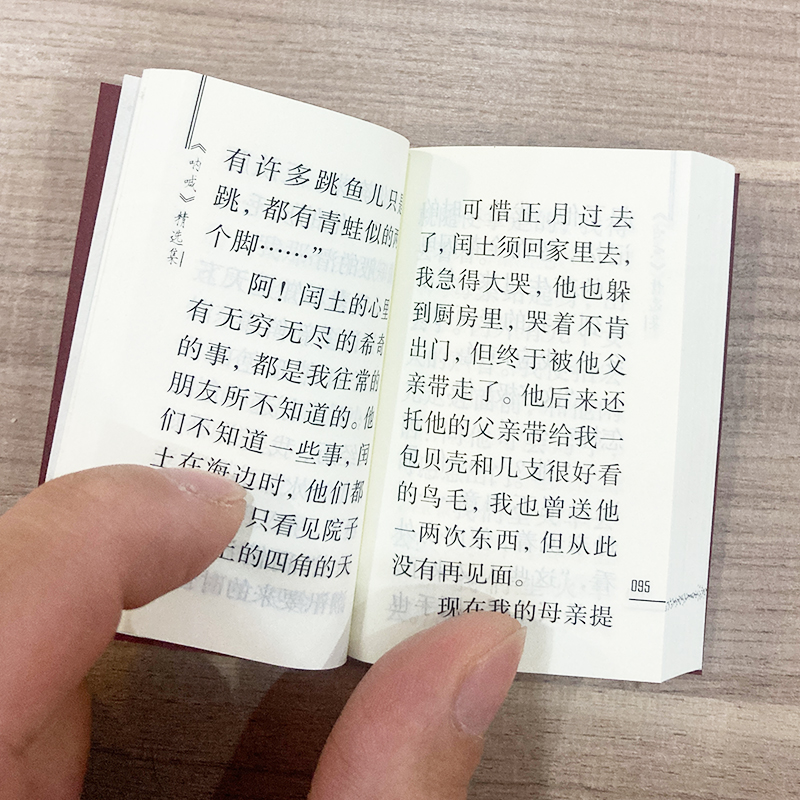 《呐喊》精选集
有许多跳鱼儿只是
跳，都有青蛙似的两
个脚……”
阿！闰土的心里
有无穷无尽的希奇
的事，都是我往常的
朋友所不知道的。他
们不知道一些事，闰
土在海边时，他们都
只看见院子
上的四角的天
可惜正月过去
了，闰土须回家里去，
我急得大哭，他也躲
到厨房里，哭着不肯
出门，但终于被他父
亲带走了。他后来还
托他的父亲带给我一
包贝壳和几支很好看
的鸟毛，我也曾送他
一两次东西，但从此
没有再见面。
现在我的母亲提
095